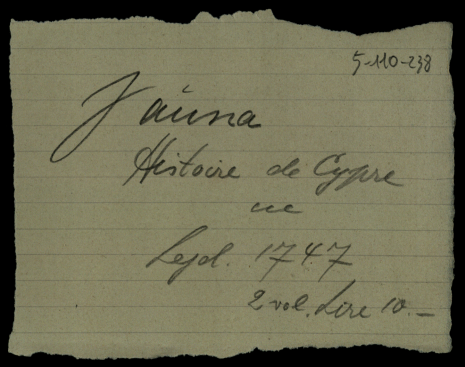 5-110-238
Jauna
Histoire de Cypre
Leyd. 1747
2 vol. Lire 10.—